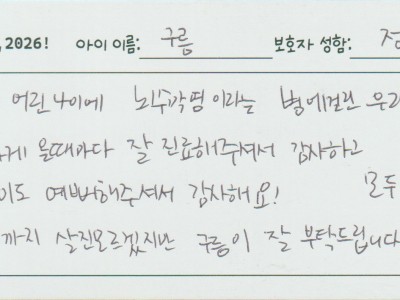 , 2026! 아이 이름: 구름 보호자 성함: 정
어린 나이에 뇌수막염 이라는 병에걸린 우리
게 올때마다 잘 진료해주셔서 감사하고
이도 예뻐해주셔서 감사해요! 모두
까지 살진모르겠지만 구름이 잘 부탁드립니다